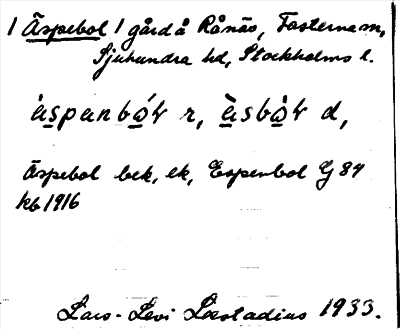 1 Äspebol 1 gård å Rånäs, Fasterna sn,
Sjuhundra hd, Stockholms l.
Äspebol bek, ek, Espenbol G 84
kb 1916
Lars-Levi Læstadius 1933.